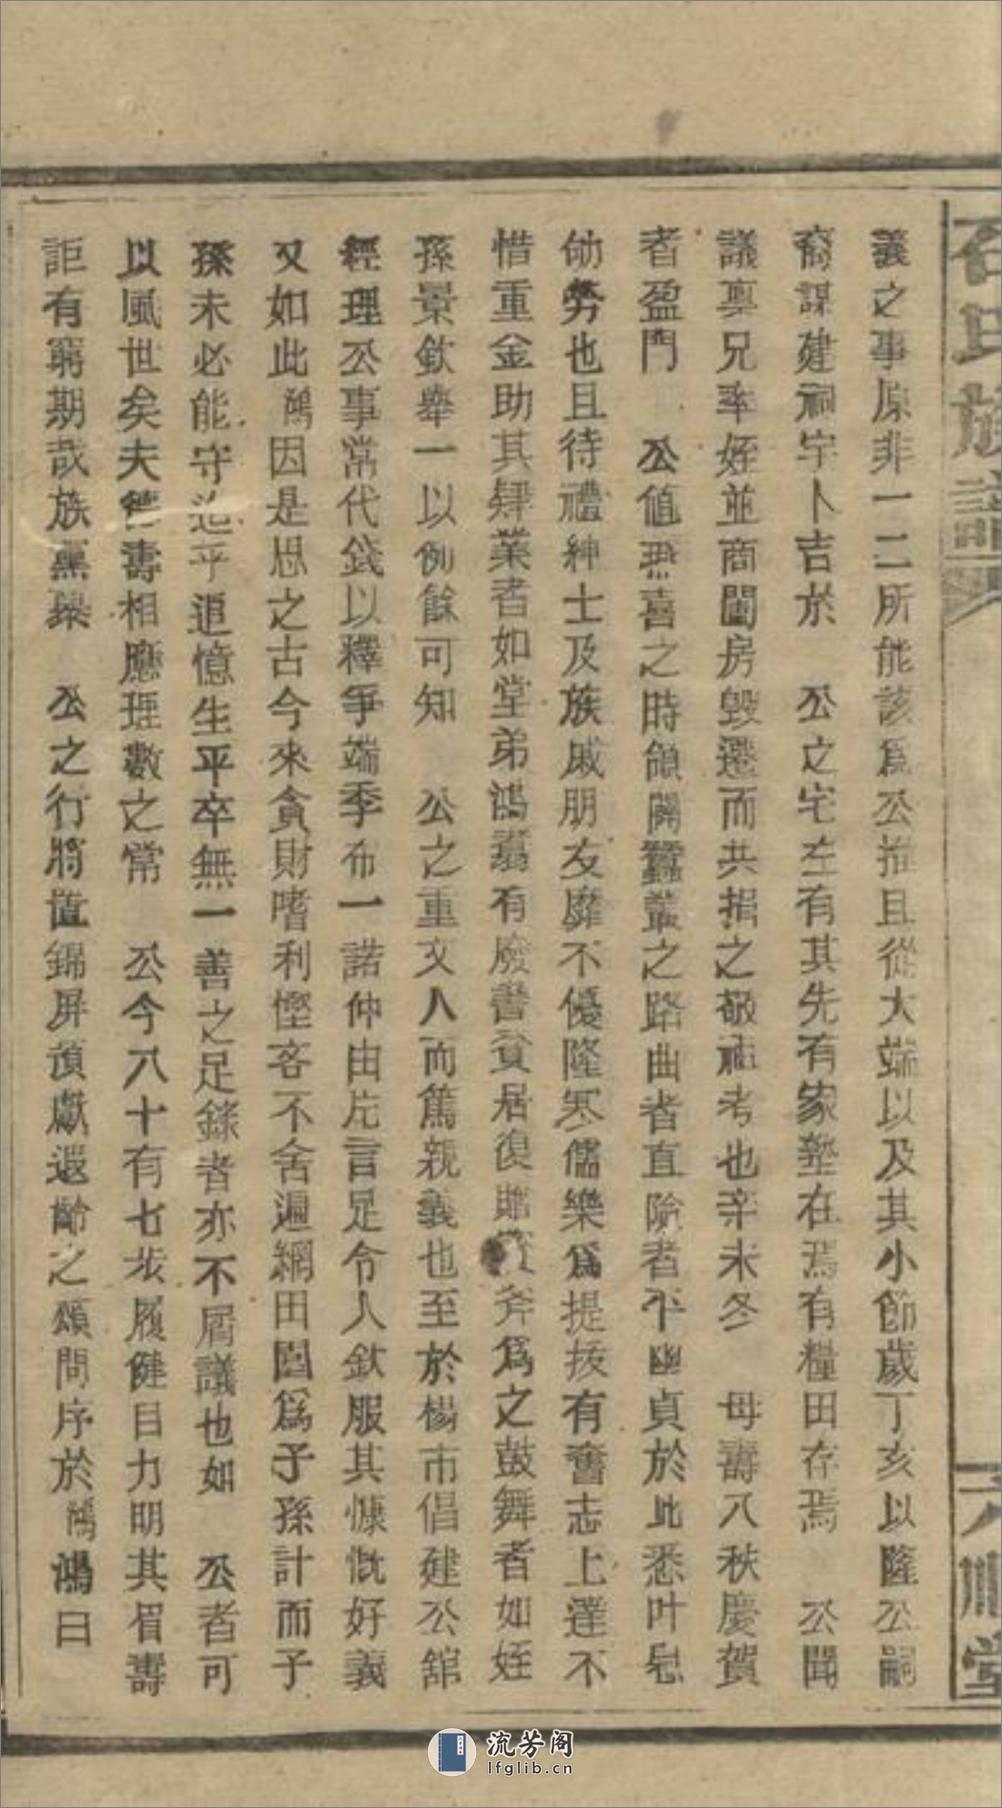 石氏族譜
六順堂
義之事原非一二所能該爲公推且從大端以及其小節歲丁亥以隆公嗣
裔謀建祠宇卜吉於 公之宅左有其先有家塾在焉有糧田存焉 公聞
議與兄率姪並商闔房毀遷而共捐之敬祖考也辛未冬 母壽八秩慶賀
者盈門 公値燕喜之時領開蠶叢之路曲者直險者平幽貞於此悉叶慰
劬勞也且待禮紳士及族戚朋友靡不優隆寒儒樂爲提拔有奮志上達不
惜重金助其肄業者如堂弟鴻翥有廢書貧居復贈 斧爲之鼓舞者如姪
孫景欽舉一以例餘可知 公之重文人而篤親義也至於楊市倡建公舘
經理公事常代錢以釋爭端季布一諾仲由片言足令人欽服其慷慨好義
又如此鴻因是思之古今來貪財嗜利慳吝不舍遍網田園爲子孫計而子
孫未必能守迨乎追憶生平卒無一善之足錄者亦不屑議也如 公者可
以風世矣夫德壽相應理數之常 公今八十有七步履健目力明其眉壽
詎有窮期哉族黨 公之行將置錦屏預獻遐齡之頌問序於 鴻曰
流芳阁
lfglib.cn